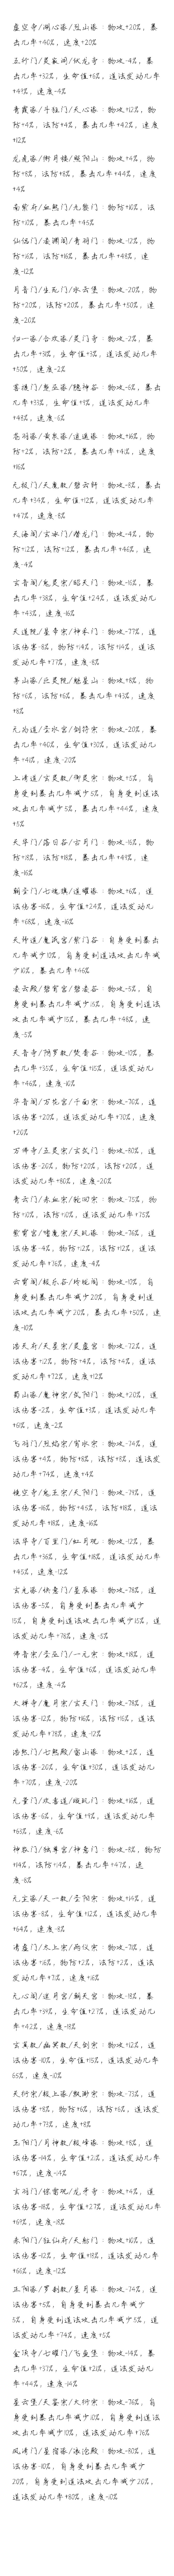 虚空寺/湖心派/烈山派：物攻+20%，暴
击几率+40%，速度+20%
五行门/吴家洞/伏龙寺：物攻-4%，暴
击几率+32%，生命值+6%，道法发动几率
+49%，速度-4%
青霞派/斗牡门/天心派：物攻+12%，物
防+4%，法防+4%，暴击几率+42%，速度
+12%
龙虎派/御月楼/照阳山：物攻+4%，物
防+8%，法防+8%，暴击几率+44%，速度
+4%
南紫府/幽熙门/无影门：物防+10%，法
防+10%，暴击几率+45%
仙临门/凌渊阁/青羽门：物攻-12%，物
防+16%，法防+16%，暴击几率+48%，速
度-12%
月音门/生死门/水云堡：物攻-20%，物
防+20%，法防+20%，暴击几率+50%，速
度-20%
归一派/合欢派/灵门寺：物攻-2%，暴
击几率+31%，生命值+3%，道法发动几率
+50%，速度-2%
菩提门/熬立派/隐神谷：物攻-6%，暴击
几率+33%，生命值+9%，道法发动几率
+48%，速度-6%
苍羽派/黄泉派/逍遥派：物攻+16%，物
防+2%，法防+2%，暴击几率+41%，速度
+16%
元极门/天魔教/碧云轩：物攻-8%，暴击
几率+34%，生命值+12%，道法发动几率
+47%，速度-8%
天海阁/玄冰门/潜龙门：物攻-4%，物
防+12%，法防+12%，暴击几率+46%，速
度-4%
玄音阁/鬼灵宗/昭天门：物攻-16%，暴
击几率+38%，生命值+24%，道法发动几
率+43%，速度-16%
天道院/星辛宗/神禾门：物攻-77%，道
法伤害-8%，物防+14%，法防+14%，道法
发动几率+77%，速度-8%
茅山派/乙灵院/魁星山：物攻+8%，物
防+6%，法防+6%，暴击几率+43%，速度
+8%
元为道/圣水宫/剑符宗：物攻-20%，暴
击几率+40%，生命值+30%，道法发动几
率+41%，速度-20%
上清道/玄灵教/御灵宗：物攻+5%，自
身受到暴击几率减少5%，自身受到道法
攻击几率减少5%，暴击几率+44%，速度
+5%
天华门/落日谷/玄月门：物攻-16%，物
防+18%，法防+18%，暴击几率+49%，速
度-16%
朝圣门/七魄旗/逍耀派：物攻+6%，道
法伤害-16%，生命值+24%，道法发动几
率+68%，速度-16%
天师道/魔讯宫/紫门谷：自身受到暴击
几率减少10%，自身受到道法攻击几率减
少10%，暴击几率+46%
凌云殿/碧霄宫/碧凌谷：物攻-5%，自
身受到暴击几率减少15%，自身受到道法
攻击几率减少15%，暴击几率+48%，速
度-5%
天音寺/阴罗教/焚香谷：物攻-10%，暴
击几率+35%，生命值+15%，道法发动几
率+46%，速度-10%
华音阁/万炎宫/千面宗：物攻-70%，道
法伤害+20%，道法发动几率+70%，速度
+20%
万佛寺/五灵宗/玄炁门：物攻-80%，道
法伤害-20%，物防+20%，法防+20%，道
法发动几率+80%，速度-20%
青云门/赤血宗/轮回宗：物攻-75%，物
防+10%，法防+10%，道法发动几率+75%
紫霄宫/嗜魔宗/天玑派：物攻-76%，道
法伤害-4%，物防+12%，法防+12%，道法
发动几率+76%，速度-4%
云霄阁/极乐谷/玲珑阁：物攻-10%，自
身受到暴击几率减少20%，自身受到道
法攻击几率减少20%，暴击几率+50%，速
度-10%
浩天府/天星宗/灵虚宫：物攻-72%，道
法伤害+12%，物防+4%，法防+4%，道法
发动几率+72%，速度+12%
蜀山派/魔神宗/炁阳门：物攻+20%，道
法伤害-2%，生命值+3%，道法发动几率
+61%，速度-2%
飞羽门/烈焰宗/育水宗：物攻-74%，道
法伤害+4%，物防+8%，法防+8%，道法发
动几率+74%，速度+4%
镜空寺/鬼王宗/天阳门：物攻-79%，道
法伤害-16%，物防+45%，法防+18%，道法
发动几率+18%，速度-16%
法华寺/百里门/虹月观：物攻-12%，暴
击几率+36%，生命值+18%，道法发动几率
+45%，速度-12%
玄光派/快意门/星辰派：物攻-78%，道
法伤害-5%，自身受到暴击几率减少
15%，自身受到道法攻击几率减少15%，道
法发动几率+78%，速度-5%
佛音宗/圣巫门/一元宗：物攻+18%，道
法伤害-4%，生命值+6%，道法发动几率
+62%，速度-4%
大禅寺/魔月宗/玄天门：物攻-78%，道
法伤害-12%，物防+16%，法防+16%，道法
发动几率+78%，速度-12%
浩然门/七煞殿/雷山派：物攻+2%，道
法伤害-20%，生命值+30%，道法发动几
率+70%，速度-20%
元量门/欢喜道/璇玑门：物攻+16%，道
法伤害-6%，生命值+9%，道法发动几率
+63%，速度-6%
神农门/独尊宫/神意门：物攻-8%，物防
+14%，法防+14%，暴击几率+47%，速
度-8%
元宝派/天一教/圣阳宗：物攻+14%，道
法伤害-8%，生命值+12%，道法发动几率
+64%，速度-8%
清虚门/太上宗/两仪宗：物攻-71%，道
法伤害+16%，物防+2%，法防+2%，道法
发动几率+71%，速度+16%
元心阁/逆月宫/鲲天宫：物攻-18%，暴
击几率+39%，生命值+27%，道法发动几
率+42%，速度-18%
玄真教/幽冥教/天剑宗：物攻+12%，道
法伤害-10%，生命值+15%，道法发动几率
65%，速度-10%
天衍宗/极上派/飘渺宗：物攻-73%，道
法伤害+8%，物防+6%，法防+6%，道法发
动几率+73%，速度+8%
正阳门/月神教/极峰派：物攻+8%，道
法伤害-14%，生命值+21%，道法发动几率
+67%，速度-14%
玄羽门/保雷观/龙牙寺：物攻+4%，道
法伤害-18%，生命值+27%，道法发动几
率+69%，速度-18%
赤阳门/狂仙府/天魁门：物攻+10%，道
法伤害-12%，生命值+18%，道法发动几率
+66%，速度-12%
正阳派/罗刹教/星月派：物攻-74%，道
法伤害+5%，自身受到暴击几率减少
5%，自身受到道法攻击几率减少5%，道
法发动几率+74%，速度+5%
金顶寺/七曜门/飞鱼堡：物攻-14%，暴
击几率+37%，生命值+21%，道法发动几
率+44%，速度-14%
星云堡/天鉴宗/大行宗：物攻-76%，自
身受到暴击几率减少10%，自身受到道法
攻击几率减少10%，道法发动几率+76%
凤清门/星宿派/浓沧殿：物攻-80%，道
法伤害-10%，自身受到暴击几率减少
20%，自身受到道法攻击几率减少20%，
道法发动几率+80%，速度-10%